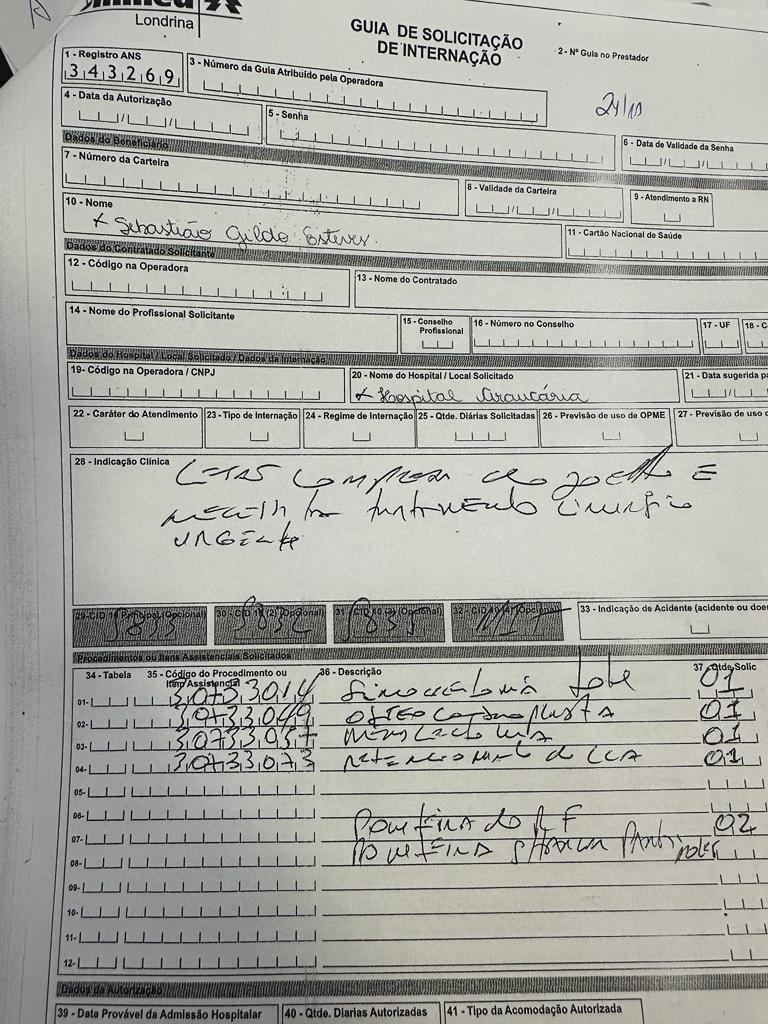 Londrina
GUIA DE SOLICITAÇÃO
DE INTERNAÇÃO
2 - Nº Guia no Prestador
1 - Registro ANS
343269
3 - Número da Guia Atribuído pela Operadora
24/10
4 - Data da Autorização
5 - Senha
6 - Data de Validade da Senha
Dados do Beneficiário
7 - Número da Carteira
8 - Validade da Carteira
9 - Atendimento a RN
10 - Nome
Sebastião Gildo Esteves
11 - Cartão Nacional de Saúde
Dados do Contratado Solicitante
12 - Código na Operadora
13 - Nome do Contratado
14 - Nome do Profissional Solicitante
15 - Conselho Profissional
16 - Número no Conselho
17 - UF
18 - C
Dados do Hospital / Local Solicitado / Dados da Internação
19- Código na Operadora / CNPJ
20 - Nome do Hospital / Local Solicitado
Hospital Araucária
21 - Data sugerida pa
22 - Caráter do Atendimento
23 - Tipo de Internação
24 - Regime de Internação
25 - Qtde. Diárias Solicitadas
26 - Previsão de uso de OPME
27 - Previsão de uso d
28 - Indicação Clínica
do joelho e
tratamento cirurgico
urgente
29-CID 10 Principal (Opcional)
30 - CID 10 (2) (Opcional)
31 - CID 10 (3) (Opcional)
32 - CID 10 (4) (Opcional)
33 - Indicação de Acidente (acidente ou doen
Procedimentos ou Itens Assistenciais Solicitados
34 - Tabela
35 - Código do Procedimento ou Item Assistencial
36 - Descrição
37 - Qtde Solic
01- 30733014 01
02- 30733049 osteocondroplastia 01
03- 30733057 01
04- 30733073 de LCA 01
05-
06-
07- Ponteira de RF 02
08- Ponteira Shaver
09-
10-
11-
12-
Dados da Autorização
39 - Data Provável da Admissão Hospitalar
40 - Qtde. Diarias Autorizadas
41 - Tipo da Acomodação Autorizada